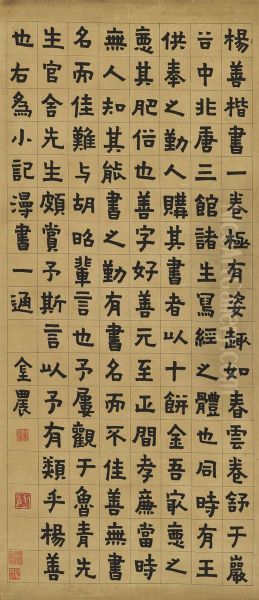 楊善楷書一卷極有姿趣如春雲卷舒于巖
谷中非唐三館諸生寫經之體也同時有王
供奉之勤人購其書者以十餅金吾冣惡之
惡其肥俗也善字好善元至正間孝廉當時
無人知其能書之勤有書名而不佳善無書
名而佳難与胡昭輩言也予屢觀于魯青先
生官舍先生頗賞予斯言以予有類乎楊善
也右為小記漫書一通 金農